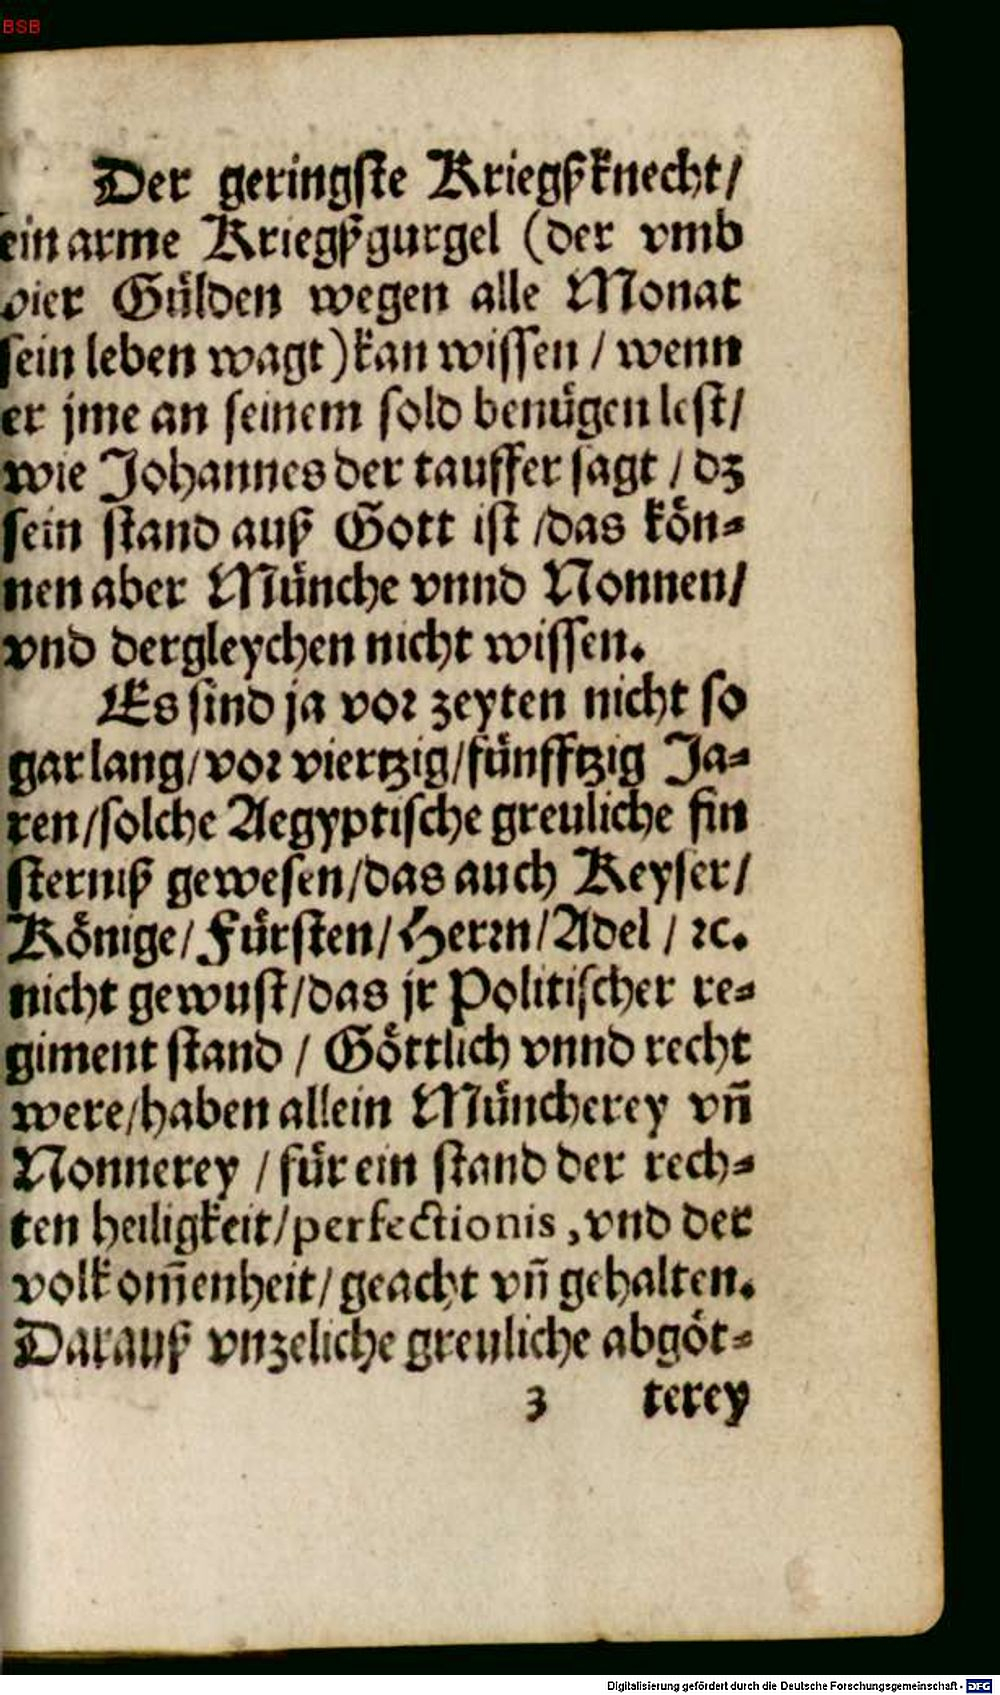 BSB
Der geringſte Kriegßknecht/
ein arme Kriegßgurgel (der vmb
vier Gülden wegen alle Monat
ſein leben wagt) kan wiſſen / wenn
er jme an ſeinem ſold benügen leſt/
wie Johannes der tauffer ſagt / dz
ſein ſtand auß Gott iſt /das kön-
nen aber Münche vnnd Nonnen/
vnd dergleychen nicht wiſſen.
Es ſind ja vor zeyten nicht ſo
gar lang/vor viertzig/fünfftzig Ja-
ren/ſolche Aegyptiſche greuliche fin
ſterniß geweſen/das auch Keyſer/
Könige/Fürſten/Herrn/Adel / ꝛc.
nicht gewuſt/das jr Politiſcher re-
giment ſtand / Göttlich vnnd recht
were/haben allein Müncherey vn̄
Nonnerey / für ein ſtand der rech-
ten heiligkeit/perfectionis, vnd der
volkom̄enheit/geacht vn̄ gehalten.
Darauß vnzeliche greuliche abgöt-
3 terey
Digitalisierung gefördert durch die Deutsche Forschungsgemeinschaft - DFG